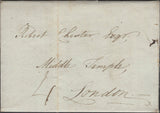 Robert Chester Esqr.
Middle Temple,
London